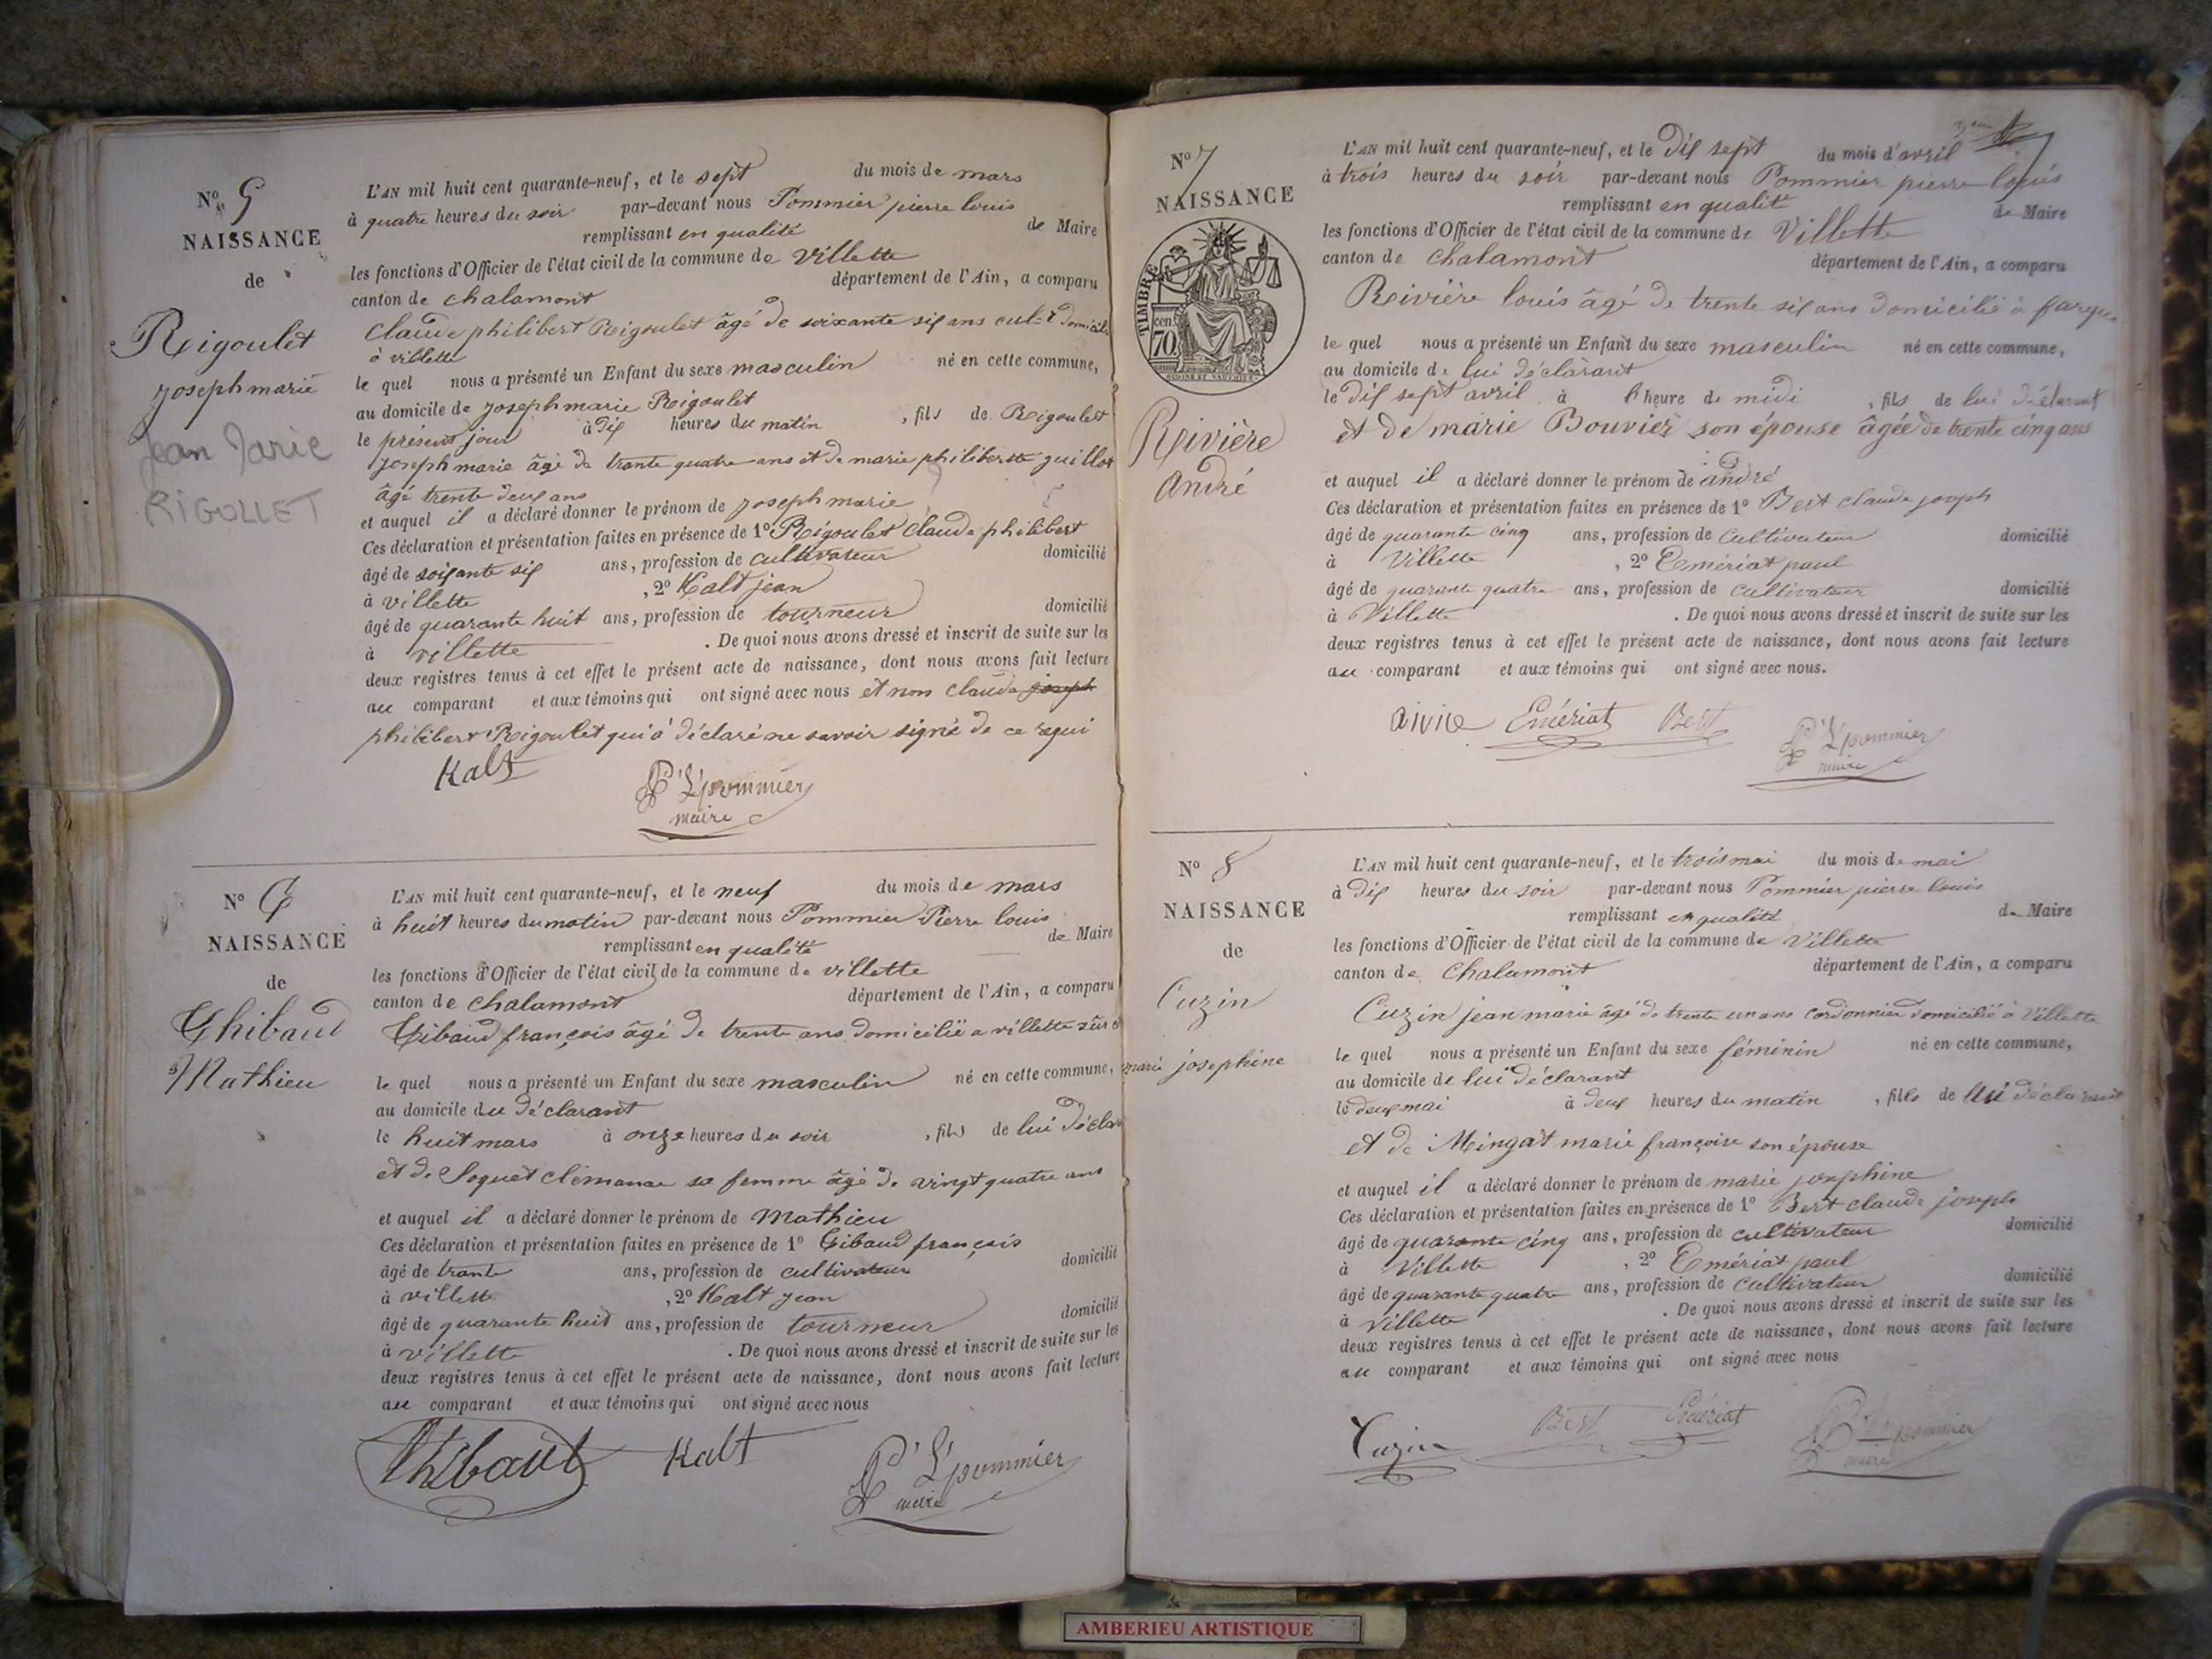 N° 5
NAISSANCE
de
Rigoulet
joseph marie
Jean Marie
RIGOLLET
L'AN mil huit cent quarante-neuf, et le sept du mois de mars
à quatre heures du soir par-devant nous Pommier pierre louis
remplissant en qualité de Maire
les fonctions d'Officier de l'état civil de la commune de villette
canton de chalamont département de l'Ain, a comparu
Claude philibert Rigoulet âgé de soixante six ans cult.r domicilié
à villette
le quel nous a présenté un Enfant du sexe masculin né en cette commune,
au domicile de joseph marie Rigoulet
le présent jour à dix heures du matin , fils de Rigoulet
joseph marie âgé de trante quatre ans et de marie philiberte guillot
âgé trente deux ans
et auquel il a déclaré donner le prénom de joseph marie
Ces déclaration et présentation faites en présence de 1° Rigoulet Claude philibert
âgé de soixante six ans, profession de cultivateur domicilié
à villette , 2° Kalt jean
âgé de quarante huit ans, profession de tourneur domicilié
à villette . De quoi nous avons dressé et inscrit de suite sur les
deux registres tenus à cet effet le présent acte de naissance, dont nous avons fait lecture
au comparant et aux témoins qui ont signé avec nous et non claude joseph
philibert Rigoulet qui a déclaré ne savoir signé de ce requi
Kalt
P L pommier
maire
N° 6
NAISSANCE
de
Thibaud
Mathieu
L'AN mil huit cent quarante-neuf, et le neuf du mois de mars
à huit heures du matin par-devant nous Pommier Pierre louis
remplissant en qualité de Maire
les fonctions d'Officier de l'état civil de la commune de villette
canton de chalamont département de l'Ain, a comparu
Tibaud françois âgé de trente ans domicilié a villette
le quel nous a présenté un Enfant du sexe masculin né en cette commune,
au domicile du déclarant
le huit mars à onze heures du soir , fils de lui déclar
et de Soquet clémance sa femme âgé de vingt quatre ans
et auquel il a déclaré donner le prénom de Mathieu
Ces déclaration et présentation faites en présence de 1° Tibaud françois
âgé de trante ans, profession de cultivateur domicilié
à villette , 2° Kalt jean
âgé de quarante huit ans, profession de tourneur domicilié
à villette . De quoi nous avons dressé et inscrit de suite sur les
deux registres tenus à cet effet le présent acte de naissance, dont nous avons fait lecture
au comparant et aux témoins qui ont signé avec nous
Thibaud Kalt
P L pommier
maire
N° 7
NAISSANCE
TIMBRE
cen. 70.
Reivière
andré
L'AN mil huit cent quarante-neuf, et le dix sept du mois d'avril
à trois heures du soir par-devant nous Pommier pierre louis
remplissant en qualité de Maire
les fonctions d'Officier de l'état civil de la commune de Villette
canton de chalamont département de l'Ain, a comparu
Reivière louis âgé de trente six ans domicilié à
le quel nous a présenté un Enfant du sexe masculin né en cette commune,
au domicile de lui déclarant
le dix sept avril à l'heure de midi , fils de lui déclarant
et de marie Bouvier son épouse âgée de trente cinq ans
et auquel il a déclaré donner le prénom de andré
Ces déclaration et présentation faites en présence de 1° Bert claude joseph
âgé de quarante cinq ans, profession de Cultivateur domicilié
à Villette , 2° Emériat paul
âgé de quarante quatre ans, profession de cultivateur domicilié
à Villette . De quoi nous avons dressé et inscrit de suite sur les
deux registres tenus à cet effet le présent acte de naissance, dont nous avons fait lecture
au comparant et aux témoins qui ont signé avec nous.
Emériat Bert
P L pommier
maire
N° 8
NAISSANCE
de
Cuzin
marie josephine
L'AN mil huit cent quarante-neuf, et le trois mai du mois de mai
à dix heures du soir par-devant nous Pommier pierre louis
remplissant en qualité de Maire
les fonctions d'Officier de l'état civil de la commune de Villette
canton de Chalamont département de l'Ain, a comparu
Cuzin jean marie âgé de trente un ans cordonnier domicilié à Villette
le quel nous a présenté un Enfant du sexe féminin né en cette commune,
au domicile de lui déclarant
le deux mai à deux heures du matin , fille de lui déclarant
et de Mingat marie françoise son épouse
et auquel il a déclaré donner le prénom de marie josephine
Ces déclaration et présentation faites en présence de 1° Bert claude joseph
âgé de quarante cinq ans, profession de cultivateur domicilié
à Villette , 2° Emériat paul
âgé de quarante quatre ans, profession de Cultivateur domicilié
à Villette . De quoi nous avons dressé et inscrit de suite sur les
deux registres tenus à cet effet le présent acte de naissance, dont nous avons fait lecture
au comparant et aux témoins qui ont signé avec nous
Cuzin Bert Emériat
P L pommier
maire
AMBERIEU ARTISTIQUE